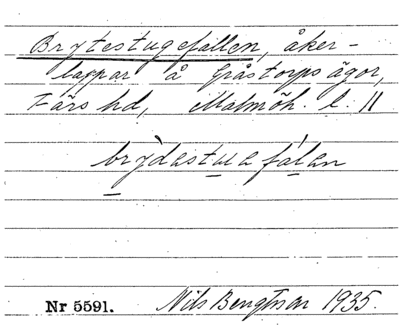 Brytestugefallen, åker-
lappar å Gråstorps ägor,
Färs hd, Malmöh. l. ||
brỳdastuafálan
Nr 5591. Nils Bengtson 1935.